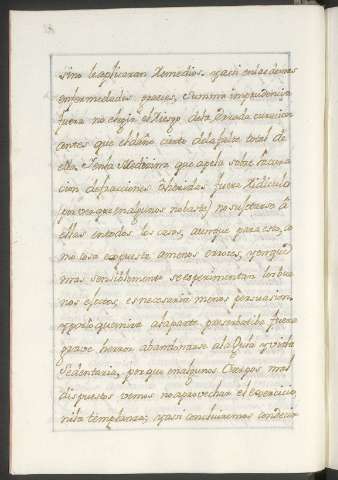 sino le aplicaran Remedios. y assi en las demas
enfermedades graves, Summa imprudencia
fuera no elegir el Riesgo de la errada curacion
antes que el daño cierto de la falta total de
ella. En la Medicina que apela sobre la cura
cion de fracciones, ô heridas fuera Ridiculo
(por ver que en algunos no baste) no sujetarse â
ellas en todos los casos, aunque para esto, co
mo cosa expuesta â menos errores, y en que
mas sensiblemente se experimentan los bue
nos efectos, es necesaria menos persuasion,
y por lo que mira â la parte preserbatiba fuera
grave herror abandonarse a la Gula y vida
Sedentaria, porque en algunos Cuerpos mal
dispuestos vemos no aprovechar el exercicio,
ni la templanza; y assi concluiremos con decir